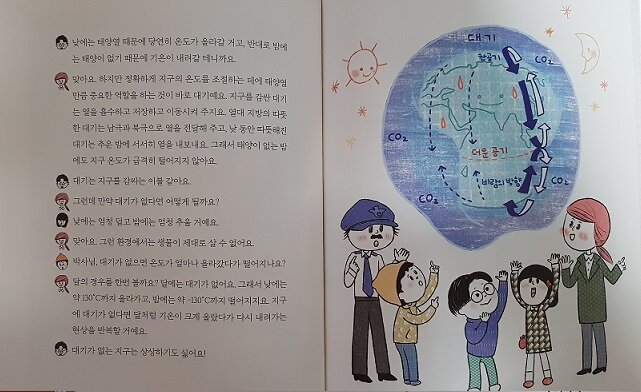 낮에는 태양열 때문에 당연히 온도가 올라갈 거고, 반대로 밤에
는 태양이 없기 때문에 기온이 내려갈 테니까요.
맞아요. 하지만 정확하게 지구의 온도를 조절하는 데에 태양열
만큼 중요한 역할을 하는 것이 바로 대기예요. 지구를 감싼 대기
는 열을 흡수하고 저장하고 이동시켜 주지요. 열대 지방의 따뜻
한 대기는 남극과 북극으로 열을 전달해 주고, 낮 동안 따뜻해진
대기는 추운 밤에 서서히 열을 내보내요. 그래서 태양이 없는 밤
에도 지구 온도가 급격히 떨어지지 않아요.
대기는 지구를 감싸는 이불 같아요.
그런데 만약 대기가 없다면 어떻게 될까요?
낮에는 엄청 덥고 밤에는 엄청 추울 거예요.
맞아요. 그런 환경에서는 생물이 제대로 살 수 없어요.
박사님, 대기가 없으면 온도가 얼마나 올라갔다가 떨어지나요?
달의 경우를 한번 볼까요? 달에는 대기가 없어요. 그래서 낮에는
약 130℃까지 올라가고, 밤에는 약 -130℃까지 떨어지지요. 지구
에 대기가 없다면 달처럼 기온이 크게 올랐다가 다시 내려가는
현상을 반복할 거예요.
대기가 없는 지구는 상상하기도 싫어요!
대기
찬공기
CO₂
CO₂
더운 공기
바람의 방향
CO₂
CO₂